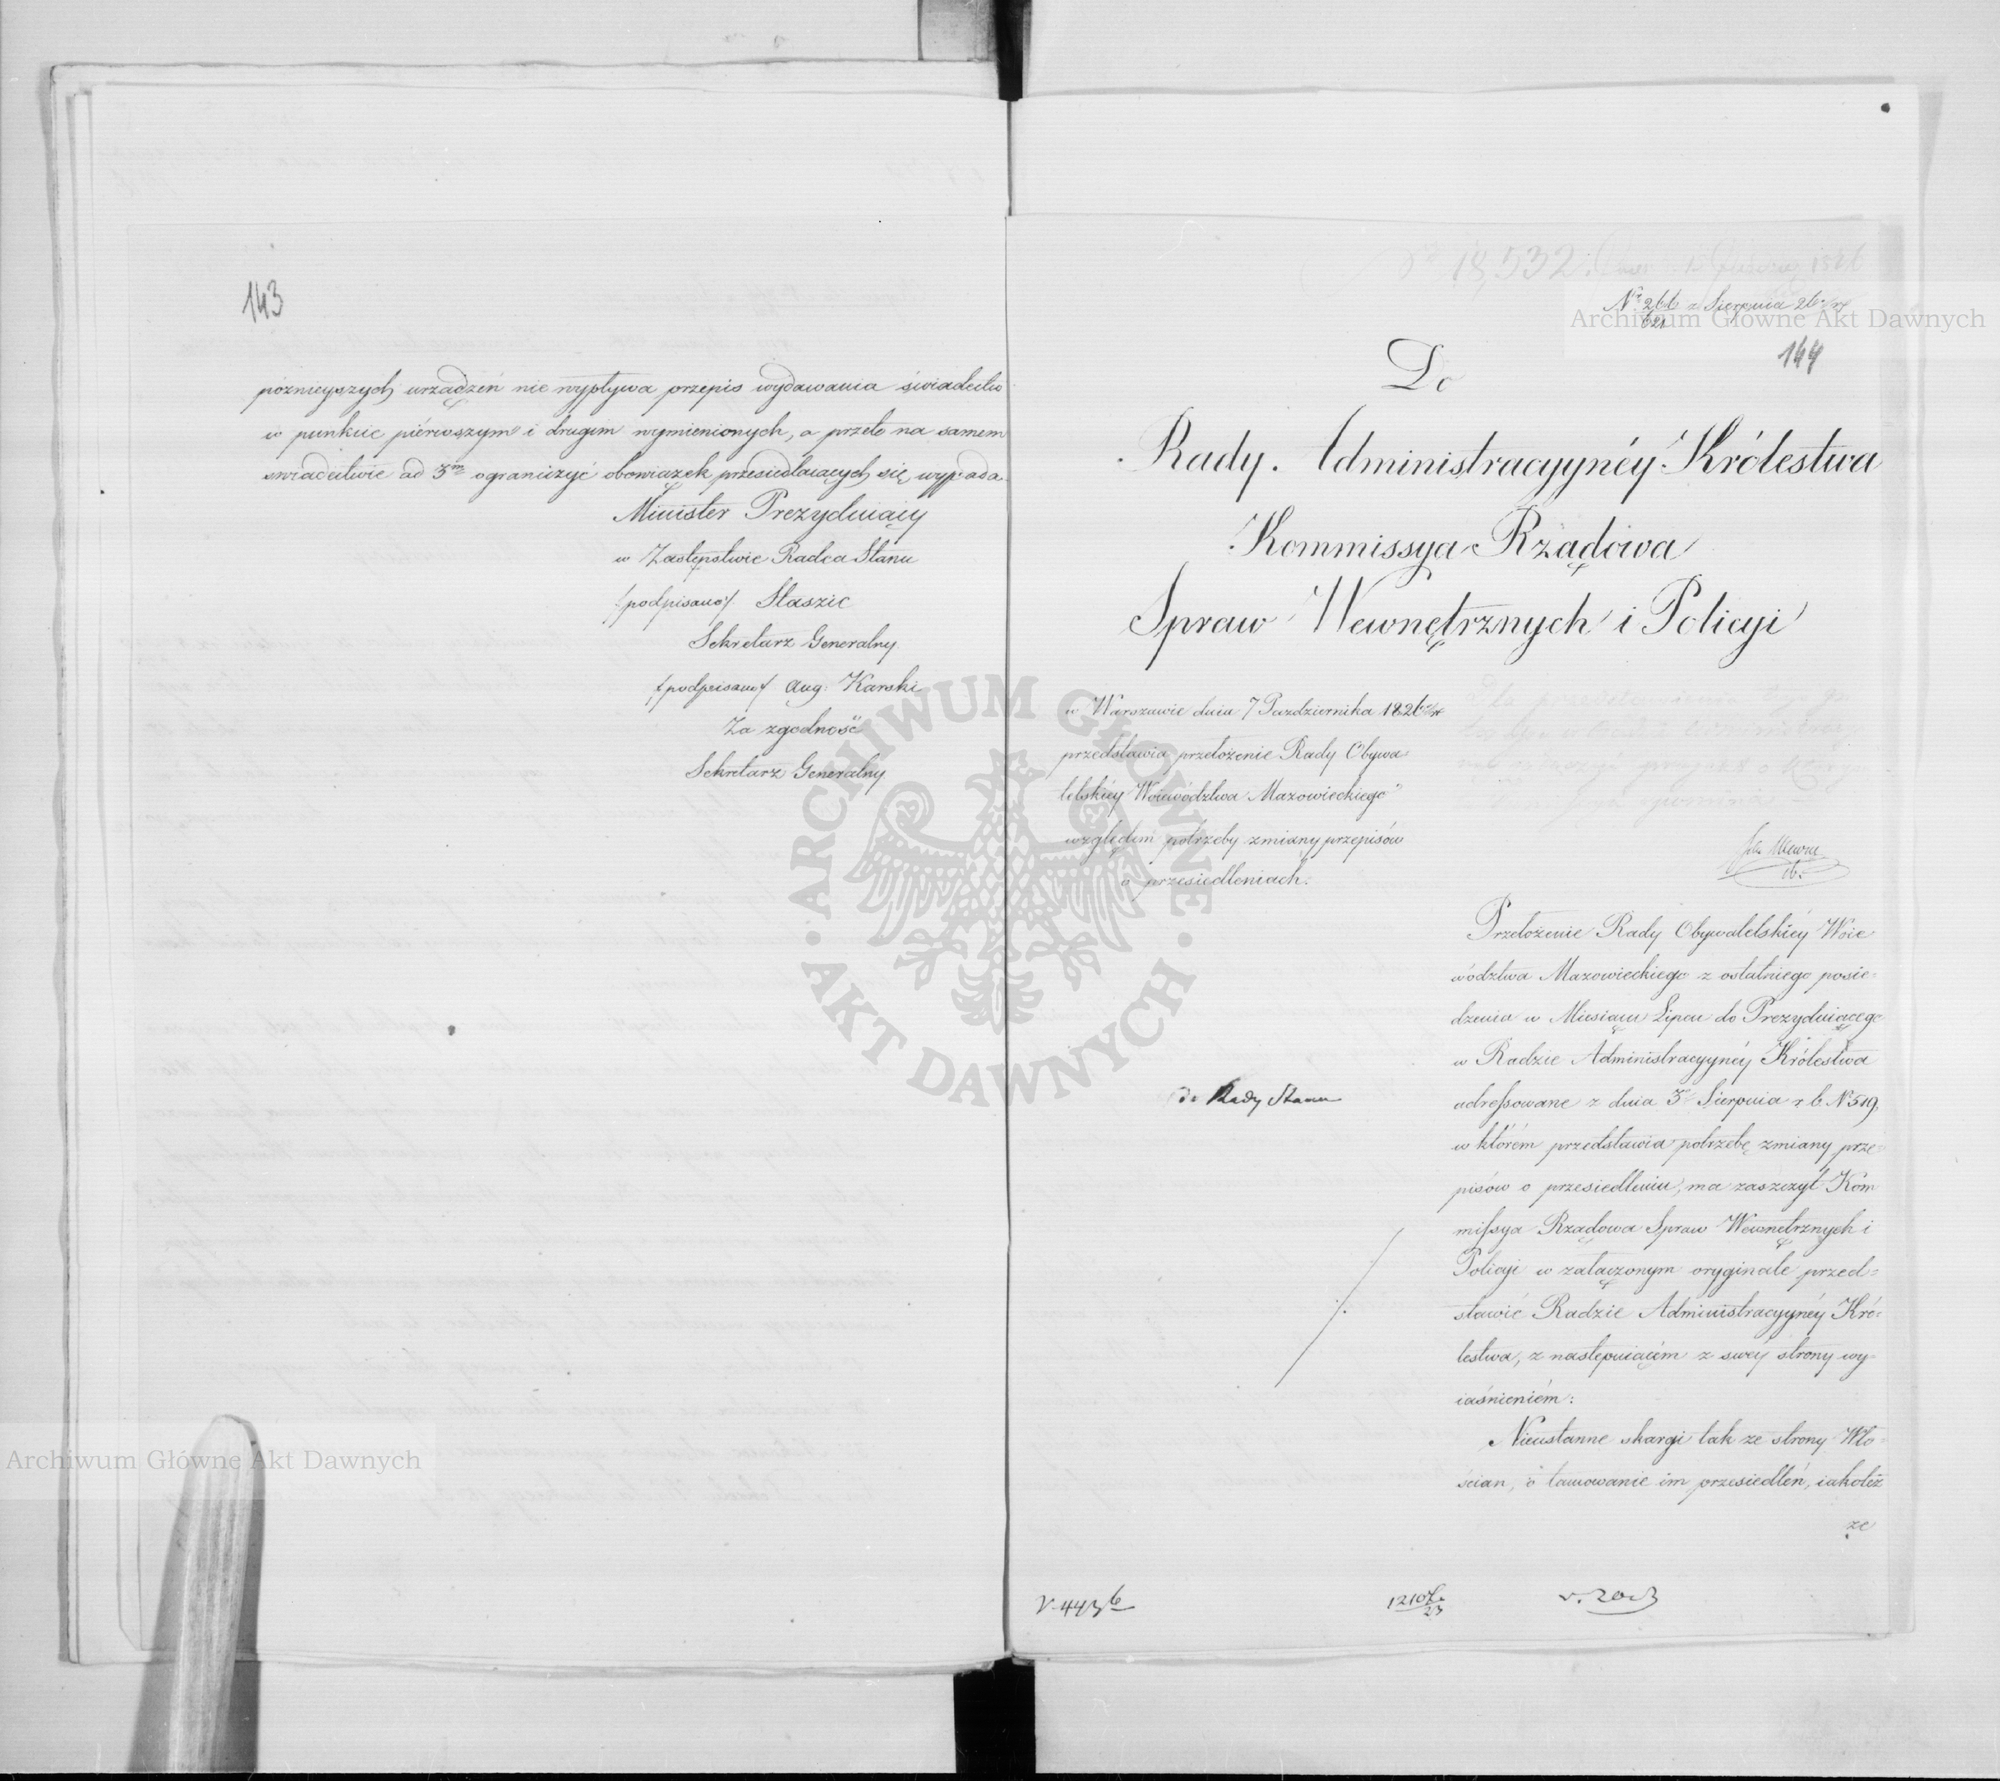 143
poznieyszych urządzeń nie wypływa przepis wydawania świadectw
w punkcie piérwszym i drugim wymienionych, a przeto na samem
swiadectwie ad 3m ograniczyć obowiązek przesiedlaiących się wypada.
Minister Prezyduiący
w Zastępstwie Radca Stanu
/podpisano/ Staszic
Sekretarz Generalny
/podpisano/ Aug: Karski
Za zgodność
Sekretarz Generalny
18,532
Nr 266 z Sierpnia 26
621
144
Do
Rady Administracyynéy Królestwa
Kommissya Rządowa
Spraw Wewnętrznych i Policyi
w Warszawie dnia 7 Pazdziernika 1826
przedstawia przełożenie Rady Obywa=
telskiéy Woiewództwa Mazowieckiego
względem potrzeby zmiany przepisów
o przesiedleniach.
Przełożenie Rady Obywatelskiéy Woie
wództwa Mazowieckiego z ostatniego posie=
dzenia w Miesiącu Lipcu do Prezyduiącego
w Radzie Administracyynéy Królestwa
adressowane z dnia 3 Sierpnia r b N 519,
w którém przedstawia potrzebę zmiany prze
pisów o przesiedleniu, ma zaszczyt Kom
missya Rządowa Spraw Wewnętrznych i
Policyi w załączonym oryginale przed=
stawić Radzie Administracyynéy Kró=
lestwa, z następuiącém z swéy strony wy=
iaśnieniém:
Nieustanne skargi tak ze strony Wło=
ścian, o tamowanie im przesiedleń, iakoteż
ze
do Rady Stanu
ARCHIWUM GŁÓWNE AKT DAWNYCH
Archiwum Główne Akt Dawnych
Archiwum Główne Akt Dawnych